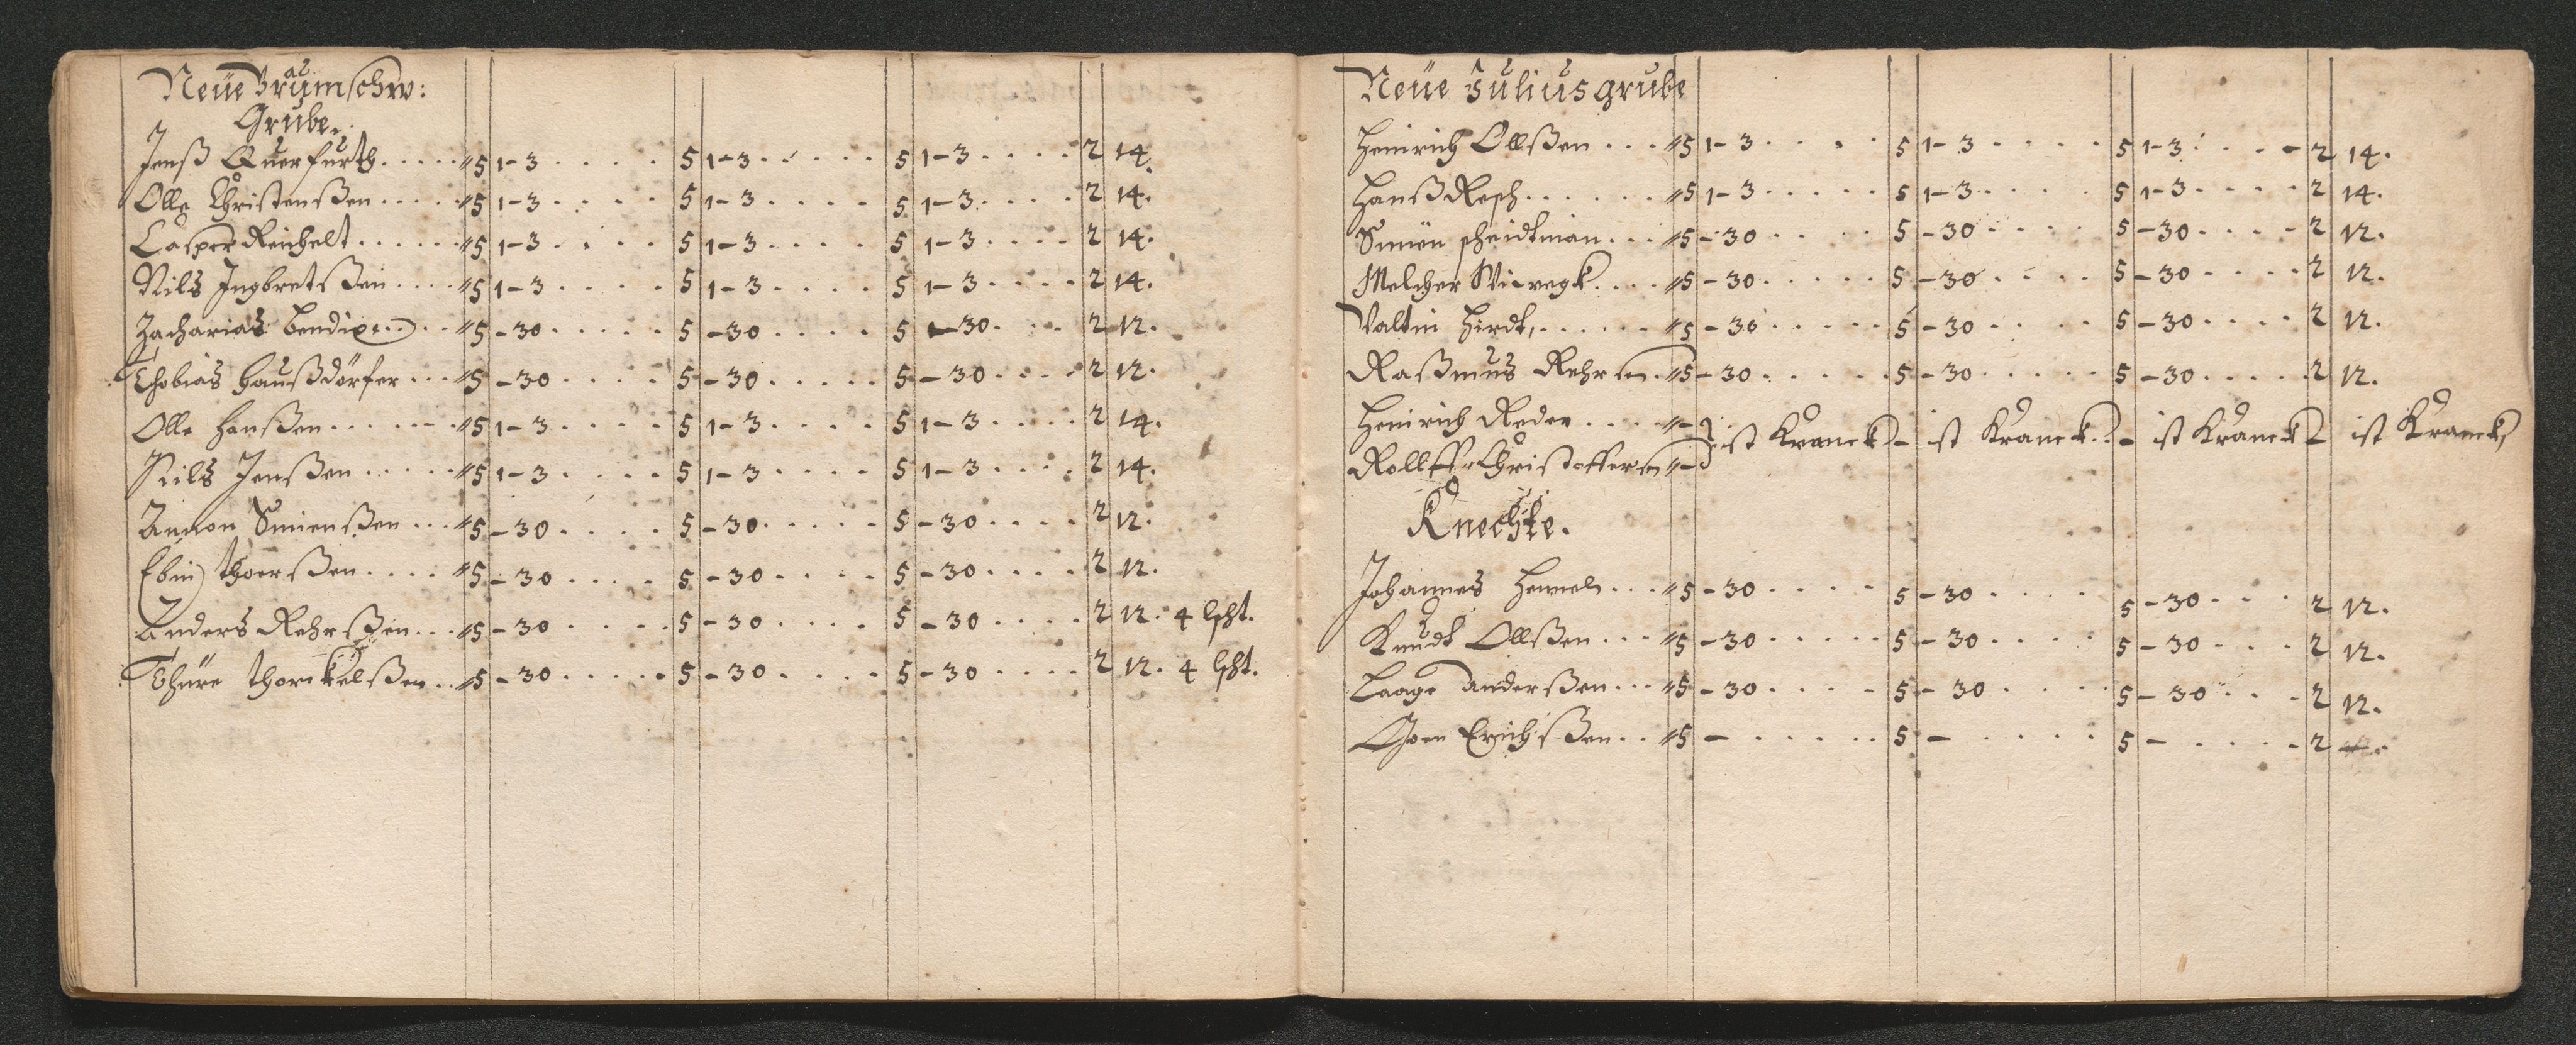 Neue Braunschw:
Grube.
Jenß Querfurth ..... 5 1-3 .... 5 1-3 .... 5 1-3 .... 2 14.
Olle Christenßen ..... 5 1-3 .... 5 1-3 .... 5 1-3 .... 2 14.
Casper Reichelt ..... 5 1-3 .... 5 1-3 .... 5 1-3 .... 2 14.
Nilß Ingbretßen .... 5 1-3 .... 5 1-3 .... 5 1-3 .... 2 14.
Zacharias Bendix .... 5 -30 .... 5 -30 .... 5 -30 .... 2 12.
Thobias Haußdörfer ... 5 -30 .... 5 -30 .... 5 -30 .... 2 12.
Olle Hanßen ...... 5 1-3 .... 5 1-3 .... 5 1-3 .... 2 14.
Nilß Jenßen ..... 5 1-3 .... 5 1-3 .... 5 1-3 .... 2 14.
Simenßen ... 5 -30 .... 5 -30 .... 5 -30 .... 2 12.
Thoerßen .... 5 -30 .... 5 -30 .... 5 -30 .... 2 12.
Anders Rehrßen ... 5 -30 .... 5 -30 .... 5 -30 .... 2 12. 4 lßht.
Thüre Thorkelßen .. 5 -30 ..... 5 -30 .... 5 -30 .... 2 12. 4 lßht.
Neüe Juliusgrube
Heinrich Ollßen ... 5 1-3 .... 5 1-3 .... 5 1-3 .... 2 14.
Hanß Resch ...... 5 1-3 .... 5 1-3 .... 5 1-3 .... 2 14.
Simon Scheidtman ... 5 -30 .... 5 -30 .... 5 -30 .... 2 12.
Melcher .... 5 -30 .... 5 -30 .... 5 -30 .... 2 12.
Valtin Hirdt ...... 5 -30 .... 5 -30 .... 5 -30 .... 2 12.
Raßmus Rehrsen . 5 -30 .... 5 -30 .... 5 -30 .... 2 12.
Heinrich Reder .... - ist Kranck - ist Kranck .. - ist Kranck - ist Kranck
Rolleff Christoffersen -
Knechte.
Johannes Hemel ... 5 -30 .... 5 -30 .... 5 -30 ... 2 12.
Knudt Ollßen ... 5 -30 .... 5 -30 .... 5 -30 ... 2 12.
Laage Anderßen ... 5 -30 .... 5 -30 .... 5 -30 ... 2 12.
Erichßen .. 5 - ..... 5 - ..... 5 - .... 2 -.